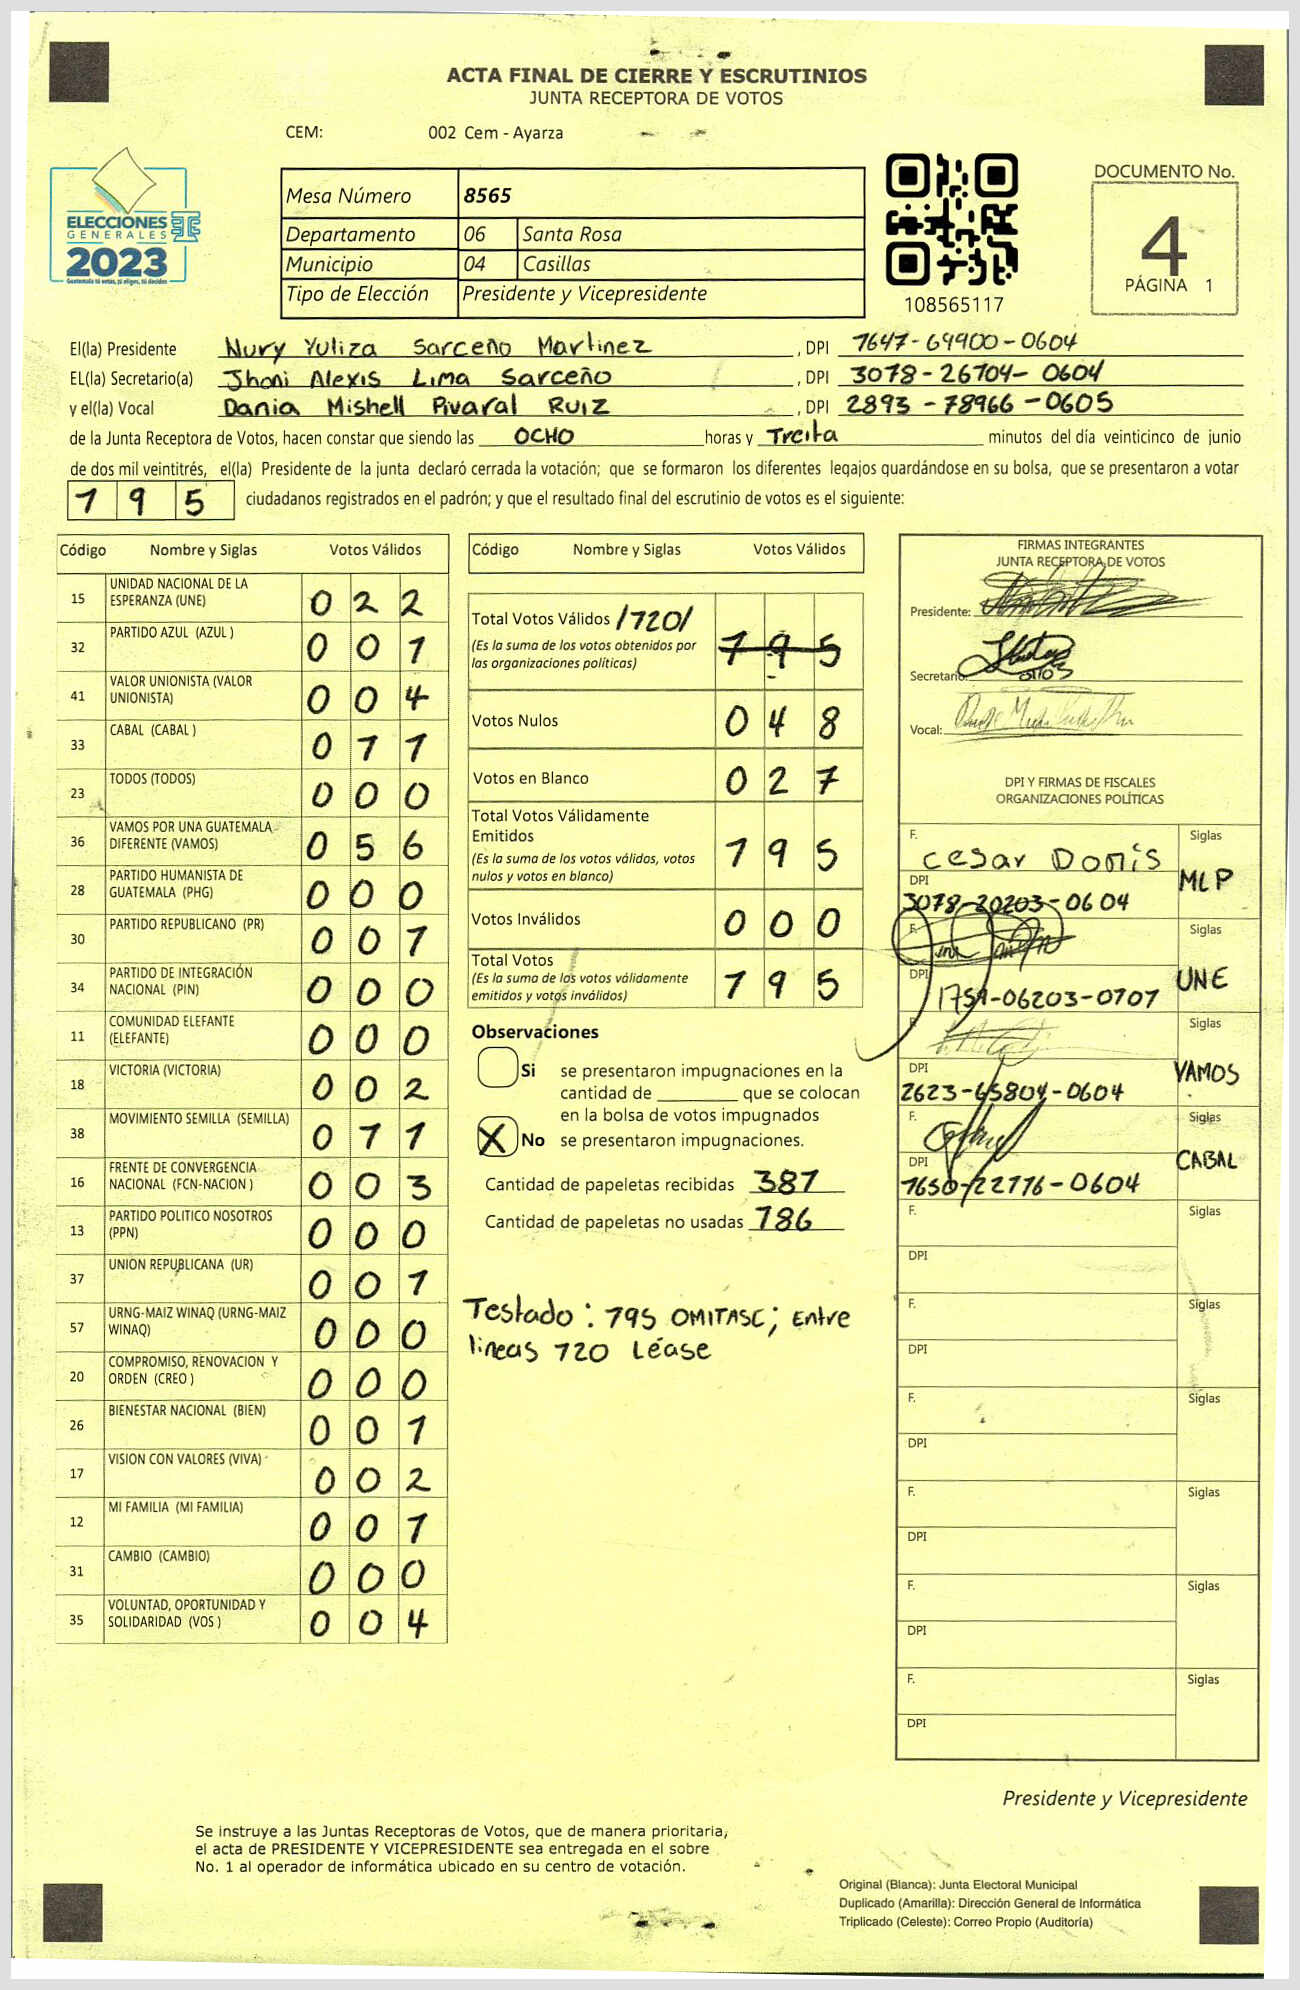 ACTA FINAL DE CIERRE Y ESCRUTINIOS
JUNTA RECEPTORA DE VOTOS
CEM: 002 Cem - Ayarza
ELECCIONES
GENERALES
2023
Guatemala tú votas, tú eliges, tú decides
Mesa Número 8565
Departamento 06 Santa Rosa
Municipio 04 Casillas
Tipo de Elección Presidente y Vicepresidente
108565117
DOCUMENTO No.
4
PÁGINA 1
El(la) Presidente Nury Yuliza Sarceño Martinez , DPI 1647-64900-0604
EL(la) Secretario(a) Jhoni Alexis Lima Sarceño , DPI 3078-26104-0604
y el(la) Vocal Dania Mishell Pivaral Ruiz , DPI 2893-78966-0605
de la Junta Receptora de Votos, hacen constar que siendo las OCHO horas y Treita minutos del día veinticinco de junio
de dos mil veintitrés, el(la) Presidente de la junta declaró cerrada la votación; que se formaron los diferentes legajos guardándose en su bolsa, que se presentaron a votar
195 ciudadanos registrados en el padrón; y que el resultado final del escrutinio de votos es el siguiente:
Código Nombre y Siglas Votos Válidos
15 UNIDAD NACIONAL DE LA ESPERANZA (UNE) 022
32 PARTIDO AZUL (AZUL ) 001
41 VALOR UNIONISTA (VALOR UNIONISTA) 004
33 CABAL (CABAL ) 011
23 TODOS (TODOS) 000
36 VAMOS POR UNA GUATEMALA DIFERENTE (VAMOS) 056
28 PARTIDO HUMANISTA DE GUATEMALA (PHG) 000
30 PARTIDO REPUBLICANO (PR) 001
34 PARTIDO DE INTEGRACIÓN NACIONAL (PIN) 000
11 COMUNIDAD ELEFANTE (ELEFANTE) 000
18 VICTORIA (VICTORIA) 002
38 MOVIMIENTO SEMILLA (SEMILLA) 011
16 FRENTE DE CONVERGENCIA NACIONAL (FCN-NACION ) 003
13 PARTIDO POLITICO NOSOTROS (PPN) 000
37 UNION REPUBLICANA (UR) 001
57 URNG-MAIZ WINAQ (URNG-MAIZ WINAQ) 000
20 COMPROMISO, RENOVACION Y ORDEN (CREO ) 000
26 BIENESTAR NACIONAL (BIEN) 001
17 VISION CON VALORES (VIVA) 002
12 MI FAMILIA (MI FAMILIA) 001
31 CAMBIO (CAMBIO) 000
35 VOLUNTAD, OPORTUNIDAD Y SOLIDARIDAD (VOS ) 004
Código Nombre y Siglas Votos Válidos
Total Votos Válidos /120/
(Es la suma de los votos obtenidos por las organizaciones políticas) 195
Votos Nulos 048
Votos en Blanco 027
Total Votos Válidamente Emitidos
(Es la suma de los votos válidos, votos nulos y votos en blanco) 195
Votos Inválidos 000
Total Votos
(Es la suma de los votos válidamente emitidos y votos inválidos) 195
Observaciones
Si se presentaron impugnaciones en la
cantidad de ________ que se colocan
en la bolsa de votos impugnados
X No se presentaron impugnaciones.
Cantidad de papeletas recibidas 387
Cantidad de papeletas no usadas 186
Testado : 195 OMITASC; Entre
lineas 120 Léase
FIRMAS INTEGRANTES
JUNTA RECEPTORA DE VOTOS
Presidente:
Secretario:
Vocal:
DPI Y FIRMAS DE FISCALES
ORGANIZACIONES POLÍTICAS
F. Cesar Donis Siglas
DPI 3078-20203-0604 MLP
F. Siglas
DPI UNE
F. Siglas
DPI 2623-65804-0604 VAMOS
F. Siglas
DPI 1650-22116-0604 CABAL
F. Siglas
DPI
F. Siglas
DPI
F. Siglas
DPI
F. Siglas
DPI
F. Siglas
DPI
F. Siglas
DPI
Presidente y Vicepresidente
Se instruye a las Juntas Receptoras de Votos, que de manera prioritaria,
el acta de PRESIDENTE Y VICEPRESIDENTE sea entregada en el sobre
No. 1 al operador de informática ubicado en su centro de votación.
Original (Blanca): Junta Electoral Municipal
Duplicado (Amarilla): Dirección General de Informática
Triplicado (Celeste): Correo Propio (Auditoría)